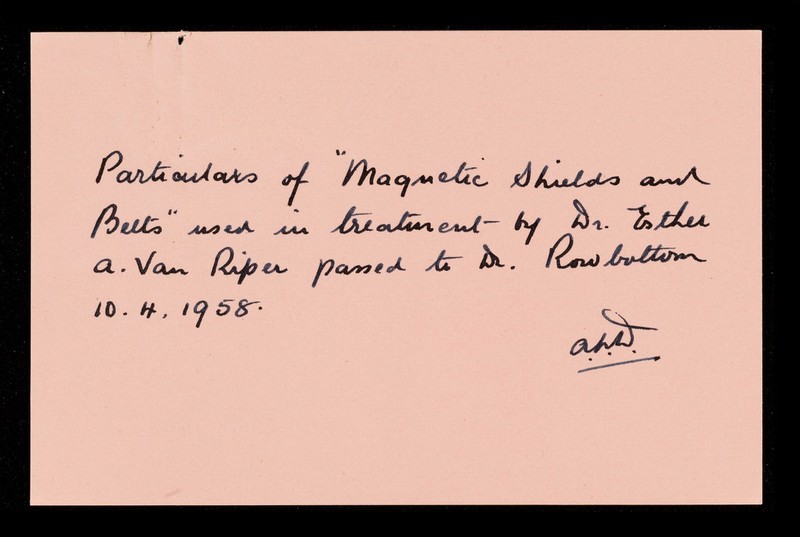 Particulars of "Magnetic Shields and
Belts" used in treatment by Dr. Esther
A. Van Riper passed to Dr. Rowbottom
10. 4. 1958.